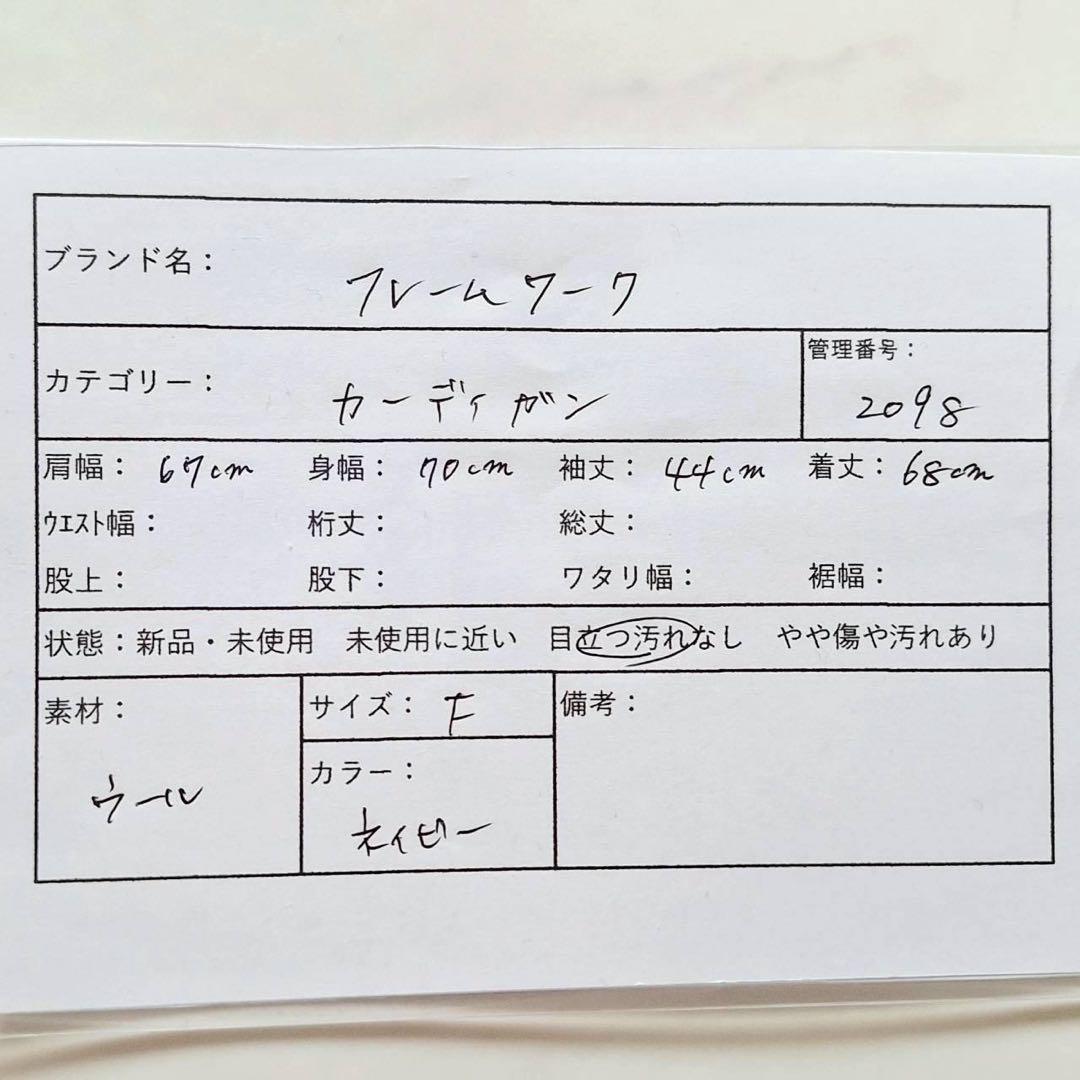 ブランド名：フレームワーク
カテゴリー：カーディガン
管理番号：
2098
肩幅：67cm 身幅：70cm 袖丈：44cm 着丈：68cm
ウエスト幅： 桁丈： 総丈：
股上： 股下： ワタリ幅： 裾幅：
状態：新品・未使用 未使用に近い 目立つ汚れなし やや傷や汚れあり
素材： サイズ：F 備考：
カラー：
ウール
ネイビー